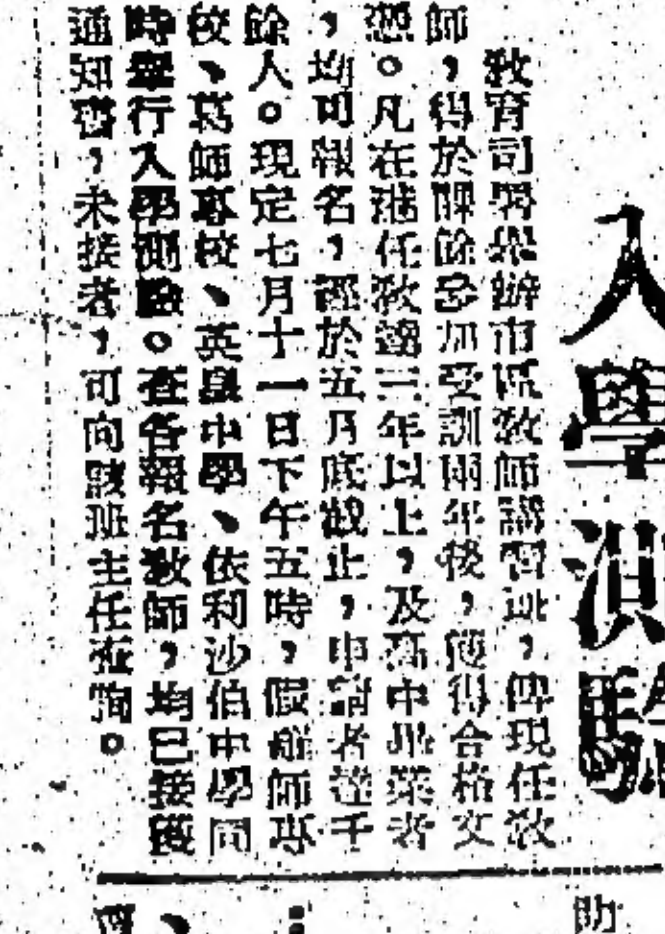 入學測驗
教育司署舉辦市區教師講習班，俾現任教
師，得於課餘參加受訓兩年後，獲得合格文
憑。凡在港任教滿三年以上，及高中畢業者
，均可報名，經於五月底截止，申請者達千
餘人。現定七月十一日下午五時，假羅師專
校、葛師專校、英皇中學、依利沙伯中學同
時舉行入學測驗。查各報名教師，均已接獲
通知書，未接者，可向該班主任查詢。
助